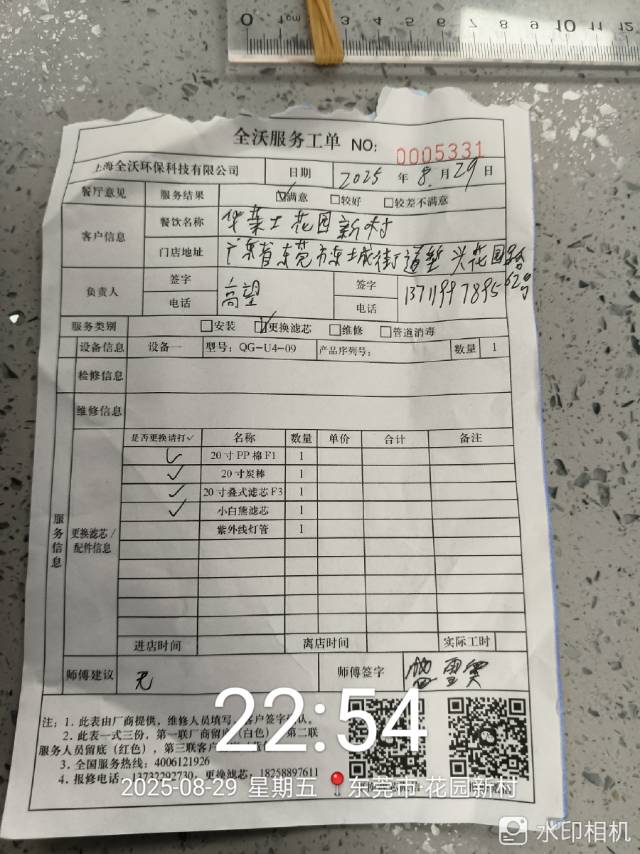 全沃服务工单 NO: 0005331
上海全沃环保科技有限公司 日期 2025 年 8 月 29 日
餐厅意见 服务结果 ☑满意 □较好 □较差不满意
客户信息 餐饮名称 华莱士花园新村
门店地址 广东省东莞市东城街道堑头花园路 62号
负责人 签字 高望 签字
电话 电话 13711997895
服务类别 □安装 ☑更换滤芯 □维修 □管道消毒
设备信息 设备一 型号: QG-U4-09 产品序列号: 数量 1
检修信息
维修信息
服务信息
更换滤芯/配件信息
是否更换请打✓ 名称 数量 单价 合计 备注
✓ 20寸PP棉F1 1
✓ 20寸炭棒 1
✓ 20寸叠式滤芯F3 1
✓ 小白熊滤芯 1
紫外线灯管 1
进店时间 离店时间 实际工时
师傅建议 无 师傅签字
注: 1. 此表由厂商提供, 维修人员填写, 客户签字确认。
2. 此表一式三份, 第一联厂商留底(白色), 第二联
服务人员留底 (红色), 第三联客户
3. 全国服务热线: 4006121926
4. 报修电话: 13732292730, 更换滤芯, 18258897611
22:54
2025-08-29 星期五 东莞市·花园新村
水印相机
0 1cm 2 3 4 5 6 7 8 9 10 11 12